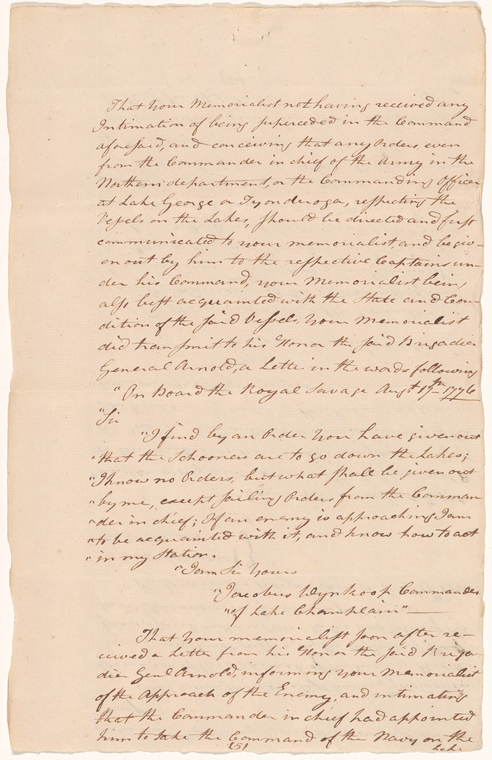 That your Memorialist not having received any
Intimation of being superceded in the Command
aforesaid, and conceiving that any Orders even
from the Commander in chief of the Army in the
Northern department, or the Commanding Officer
at Lake George or Tyonderoga, respecting the
Vessels on the Lakes, should be directed and first
communicated to your memorialist and be giv-
en out by him to the respective Captains un-
der his Command, your Memorialist being
also best acquainted with the State and Con
dition of the said Vessels, Your Memorialist
did transmit to his Honor the said Brigadier
General Arnold, a Letter in the words following
"On Board the Royal Savage Augt 17th 1776
"Sir
"I find by an Order you have given out
"that the Schooners are to go down the Lakes;
"I know no Orders, but what shall be given out
"by me, except sailing Orders from the Comman
"der in chief; If an enemy is approaching I am
"to be acquainted with it, and know how to act
"in my Station.
"I am Sir Yours
"Jacobus Wynkoop Commander
"of Lake Champlain"
That your memorialist soon after re-
ceived a Letter from his Honor the said Briga
dier Genl Arnold, informing your Memorialist
of the Approach of the Enemy, and intimating
that the Commander in chief had appointed
him to take the Command of the Navy on the
(5) Lake